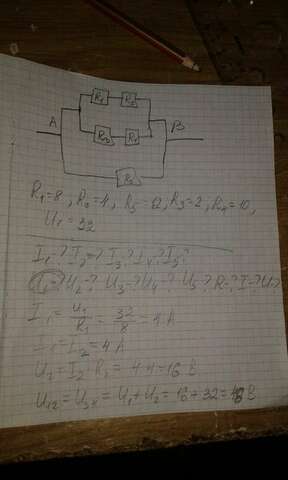 R₁ R₂
A B
R₃ R₄
R₅
R₁=8, R₂=4, R₅=12, R₃=2, R₄=10,
U₁=32
I₁-? I₂=? I₃? I₄? I₅?
U₂-? U₃-? U₄-? U₅? R-? I-? U-?
I₁ = U₁/R₁ = 32/8 = 4 A
I₁=I₂=4 A
U₂=I₂·R₂=4·4=16 B
U₁₂=U₃₄=U₁+U₂=16+32=48 B